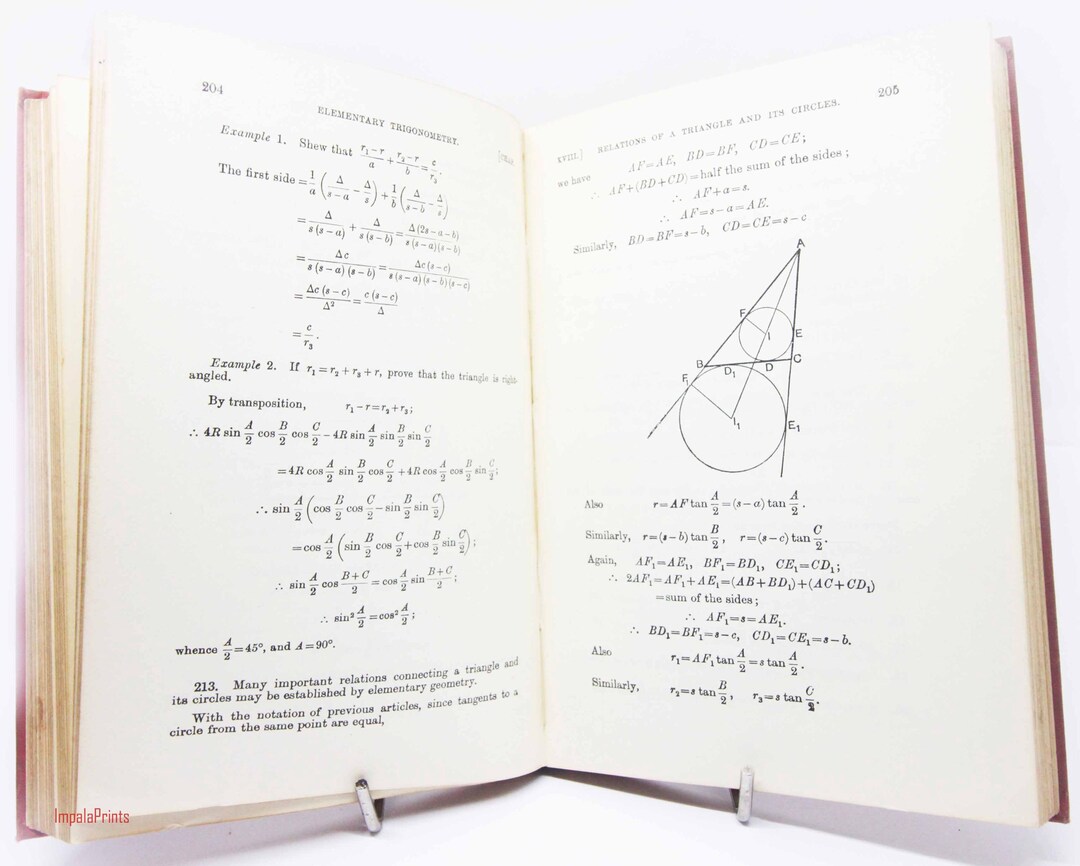 204
ELEMENTARY TRIGONOMETRY.
Example 1. Shew that (r₁−r)/a + (r₂−r)/b = c/r₃.
The first side = 1/a (Δ/(s−a) − Δ/s) + 1/b (Δ/(s−b) − Δ/s)
= Δ/(s(s−a)) + Δ/(s(s−b)) = Δ(2s−a−b)/(s(s−a)(s−b))
= Δc/(s(s−a)(s−b)) = Δc(s−c)/(s(s−a)(s−b)(s−c))
= Δc(s−c)/Δ² = c(s−c)/Δ
= c/r₃.
Example 2. If r₁=r₂+r₃+r, prove that the triangle is right-
angled.
By transposition, r₁−r=r₂+r₃;
∴ 4R sin A/2 cos B/2 cos C/2 − 4R sin A/2 sin B/2 sin C/2
= 4R cos A/2 sin B/2 cos C/2 + 4R cos A/2 cos B/2 sin C/2;
∴ sin A/2 (cos B/2 cos C/2 − sin B/2 sin C/2)
= cos A/2 (sin B/2 cos C/2 + cos B/2 sin C/2);
∴ sin A/2 cos (B+C)/2 = cos A/2 sin (B+C)/2;
∴ sin² A/2 = cos² A/2;
whence A/2 = 45°, and A = 90°.
213. Many important relations connecting a triangle and
its circles may be established by elementary geometry.
With the notation of previous articles, since tangents to a
circle from the same point are equal,
ImpalaPrints
XVIII.] RELATIONS OF A TRIANGLE AND ITS CIRCLES. 205
we have AF=AE, BD=BF, CD=CE;
∴ AF+(BD+CD)=half the sum of the sides;
∴ AF+a=s.
∴ AF=s−a=AE.
Similarly, BD=BF=s−b, CD=CE=s−c
A
F
I
E
B
D₁
D
C
F₁
I₁
E₁
Also r=AF tan A/2=(s−a) tan A/2.
Similarly, r=(s−b) tan B/2, r=(s−c) tan C/2.
Again, AF₁=AE₁, BF₁=BD₁, CE₁=CD₁;
∴ 2AF₁=AF₁+AE₁=(AB+BD₁)+(AC+CD₁)
=sum of the sides;
∴ AF₁=s=AE₁.
∴ BD₁=BF₁=s−c, CD₁=CE₁=s−b.
Also r₁=AF₁ tan A/2=s tan A/2.
Similarly, r₂=s tan B/2, r₃=s tan C/2.